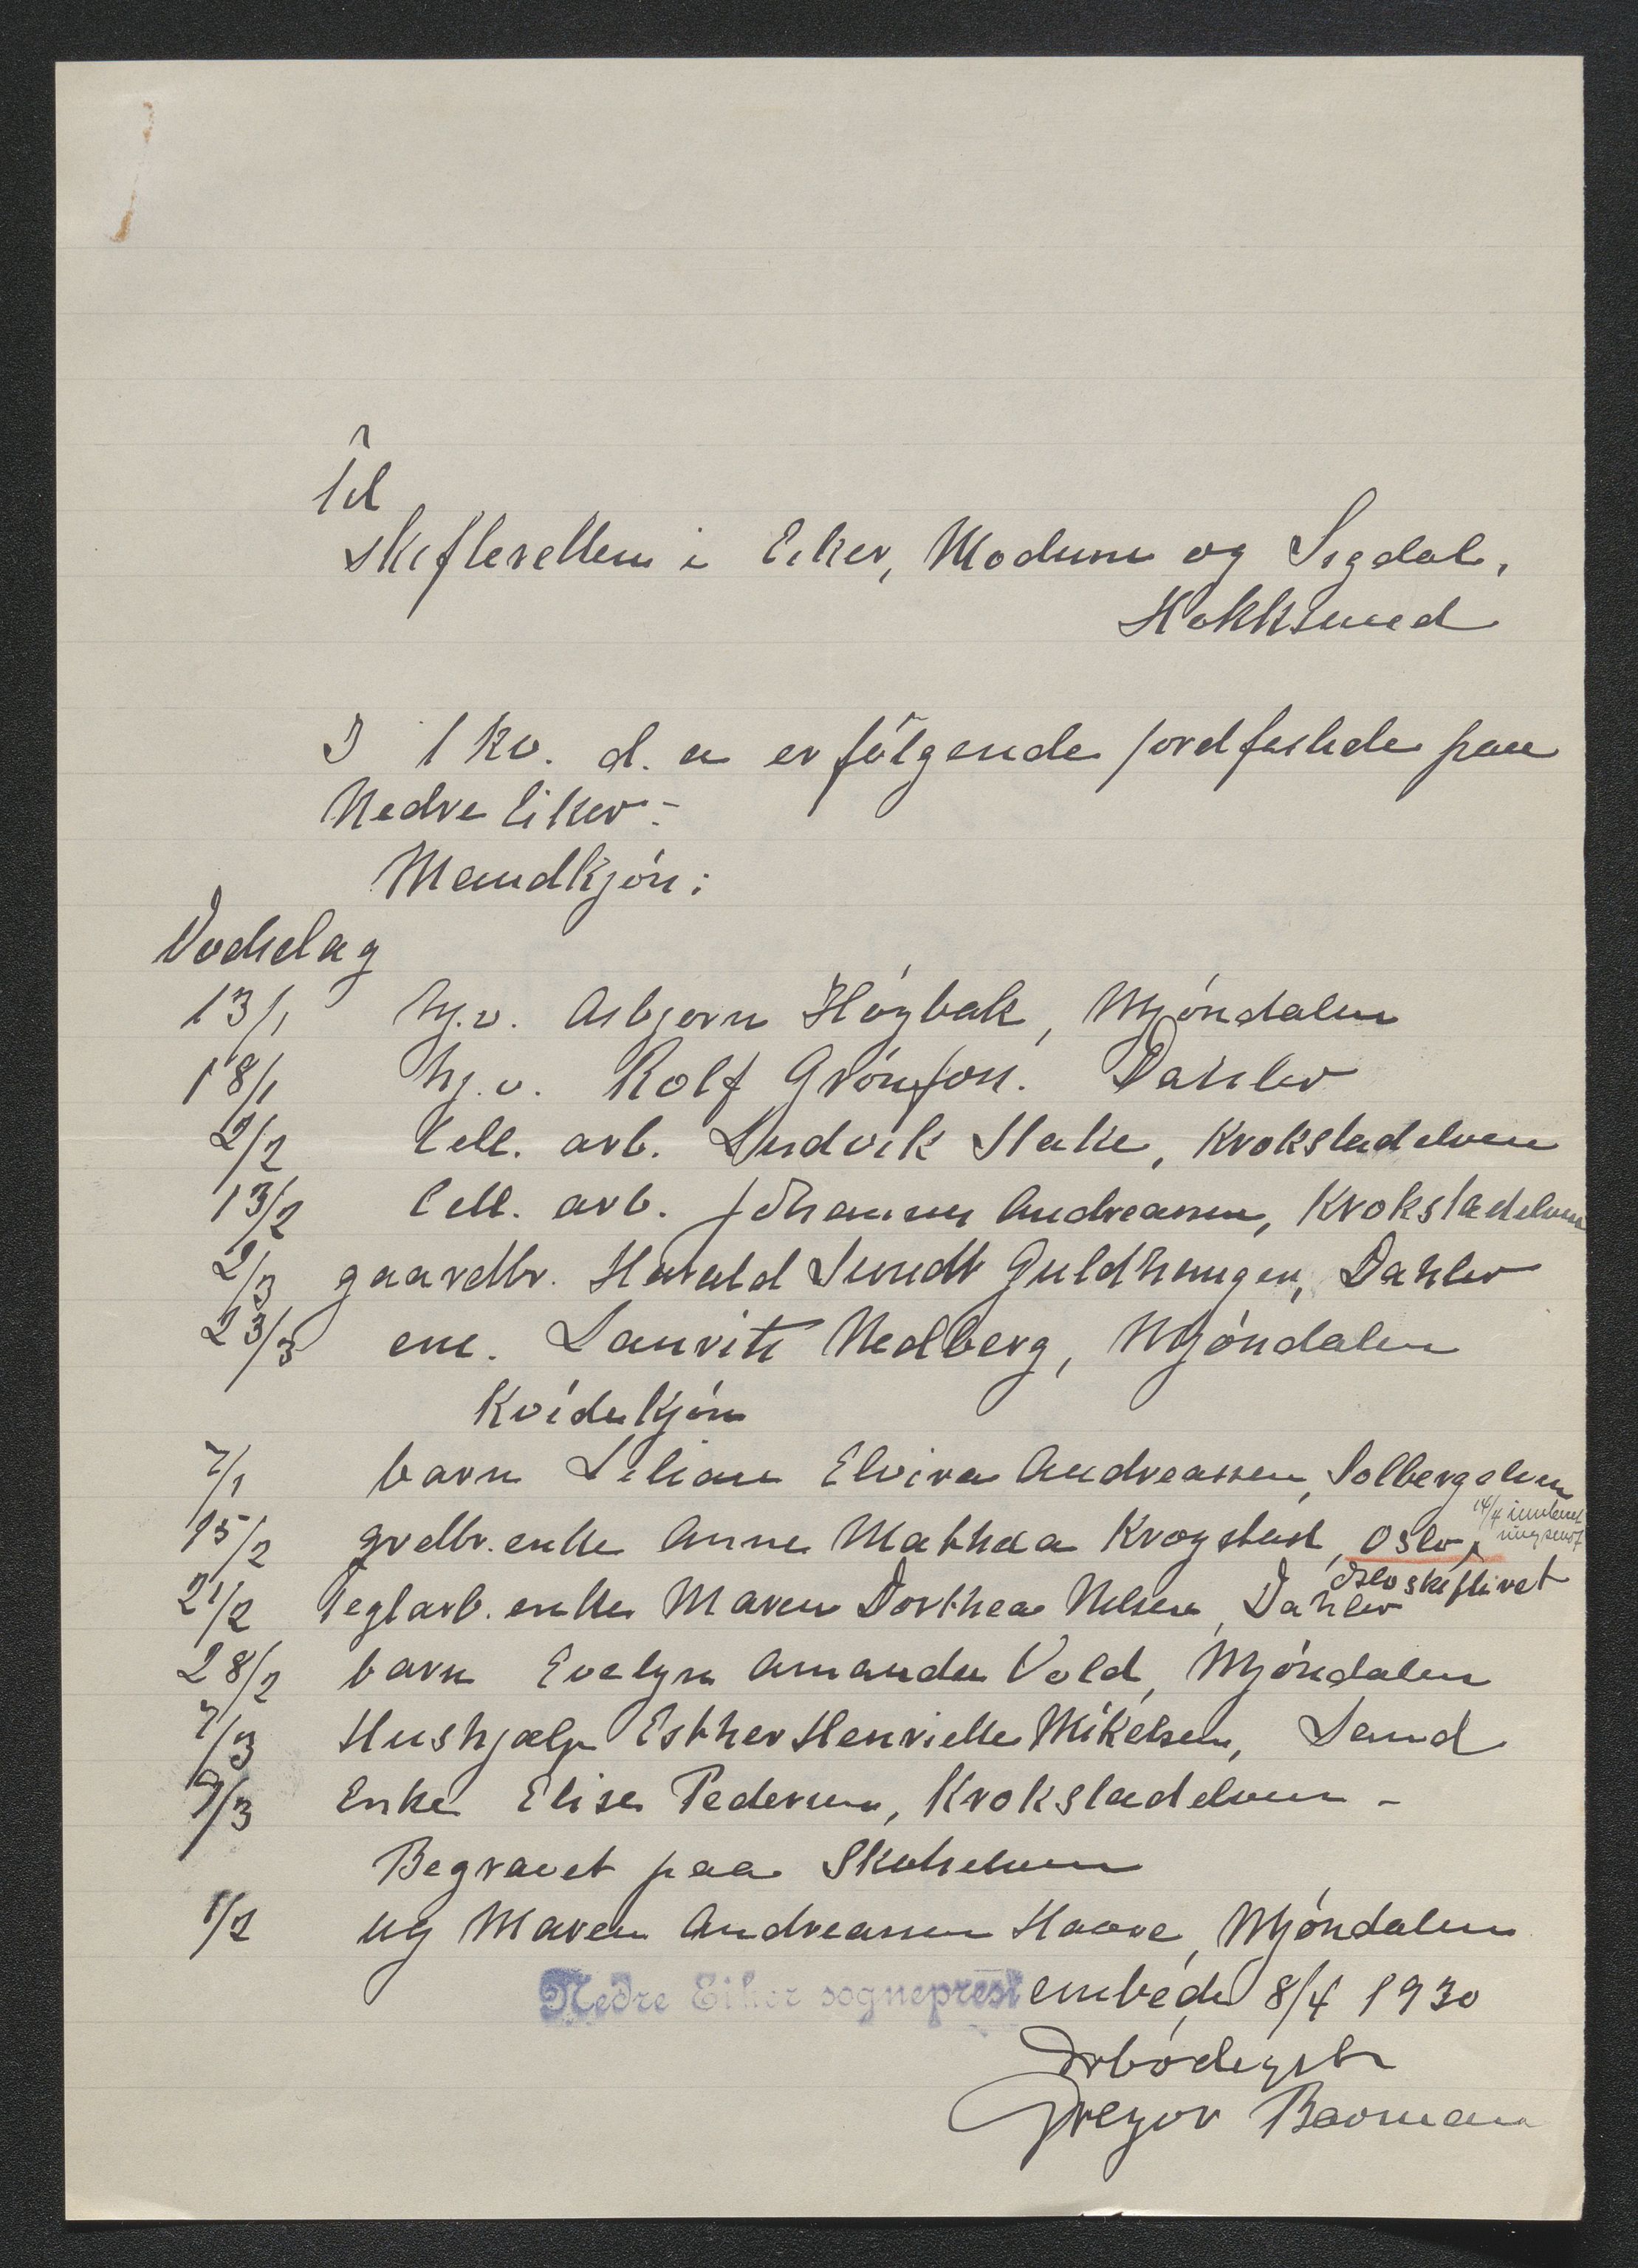 Til
skifteretten i Eiker, Modum og Sigdal,
Hokksund
I 1 kv. d. a er følgende jordfestede paa
Nedre Eiker:-
Mandkjøn:
Dødsdag
13/1 hj.v. Asbjørn Høgbak, Mjøndalen
18/1 hj.v. Rolf Dahler
2/2 Cell. arb. Ludvik Stake, Krokstadelven
13/2 Cell. arb. Johannes Andreassen, Krokstadelven
2/3 gaardbr. Harald Sundt Guldhaugen, Dahler
23/3 em. Lauritz Hedberg, Mjøndalen
Kvindekjøn
7/1 barn Lilian Elvira Andreassen, Solbergelven
15/2 grdbr. enke Anne Mathea Krogstad, Oslo, 14/4
Oslo skifteret
21/2 Teglarb. enke Maren Dorthea Nilsen, Dahler
28/2 barn Evelyn Amanda Vold, Mjøndalen
7/3 Hushjælp Esther Henriette Mikelsen, Sand
9/3 Enke Elise Pedersen, Krokstadelven -
Begravet paa Skotselven
1/2 ug Maren Andreassen Haare, Mjøndalen
Nedre Eiker sogneprestembede 8/4 1930
Ærbødigst
Gregor Borman